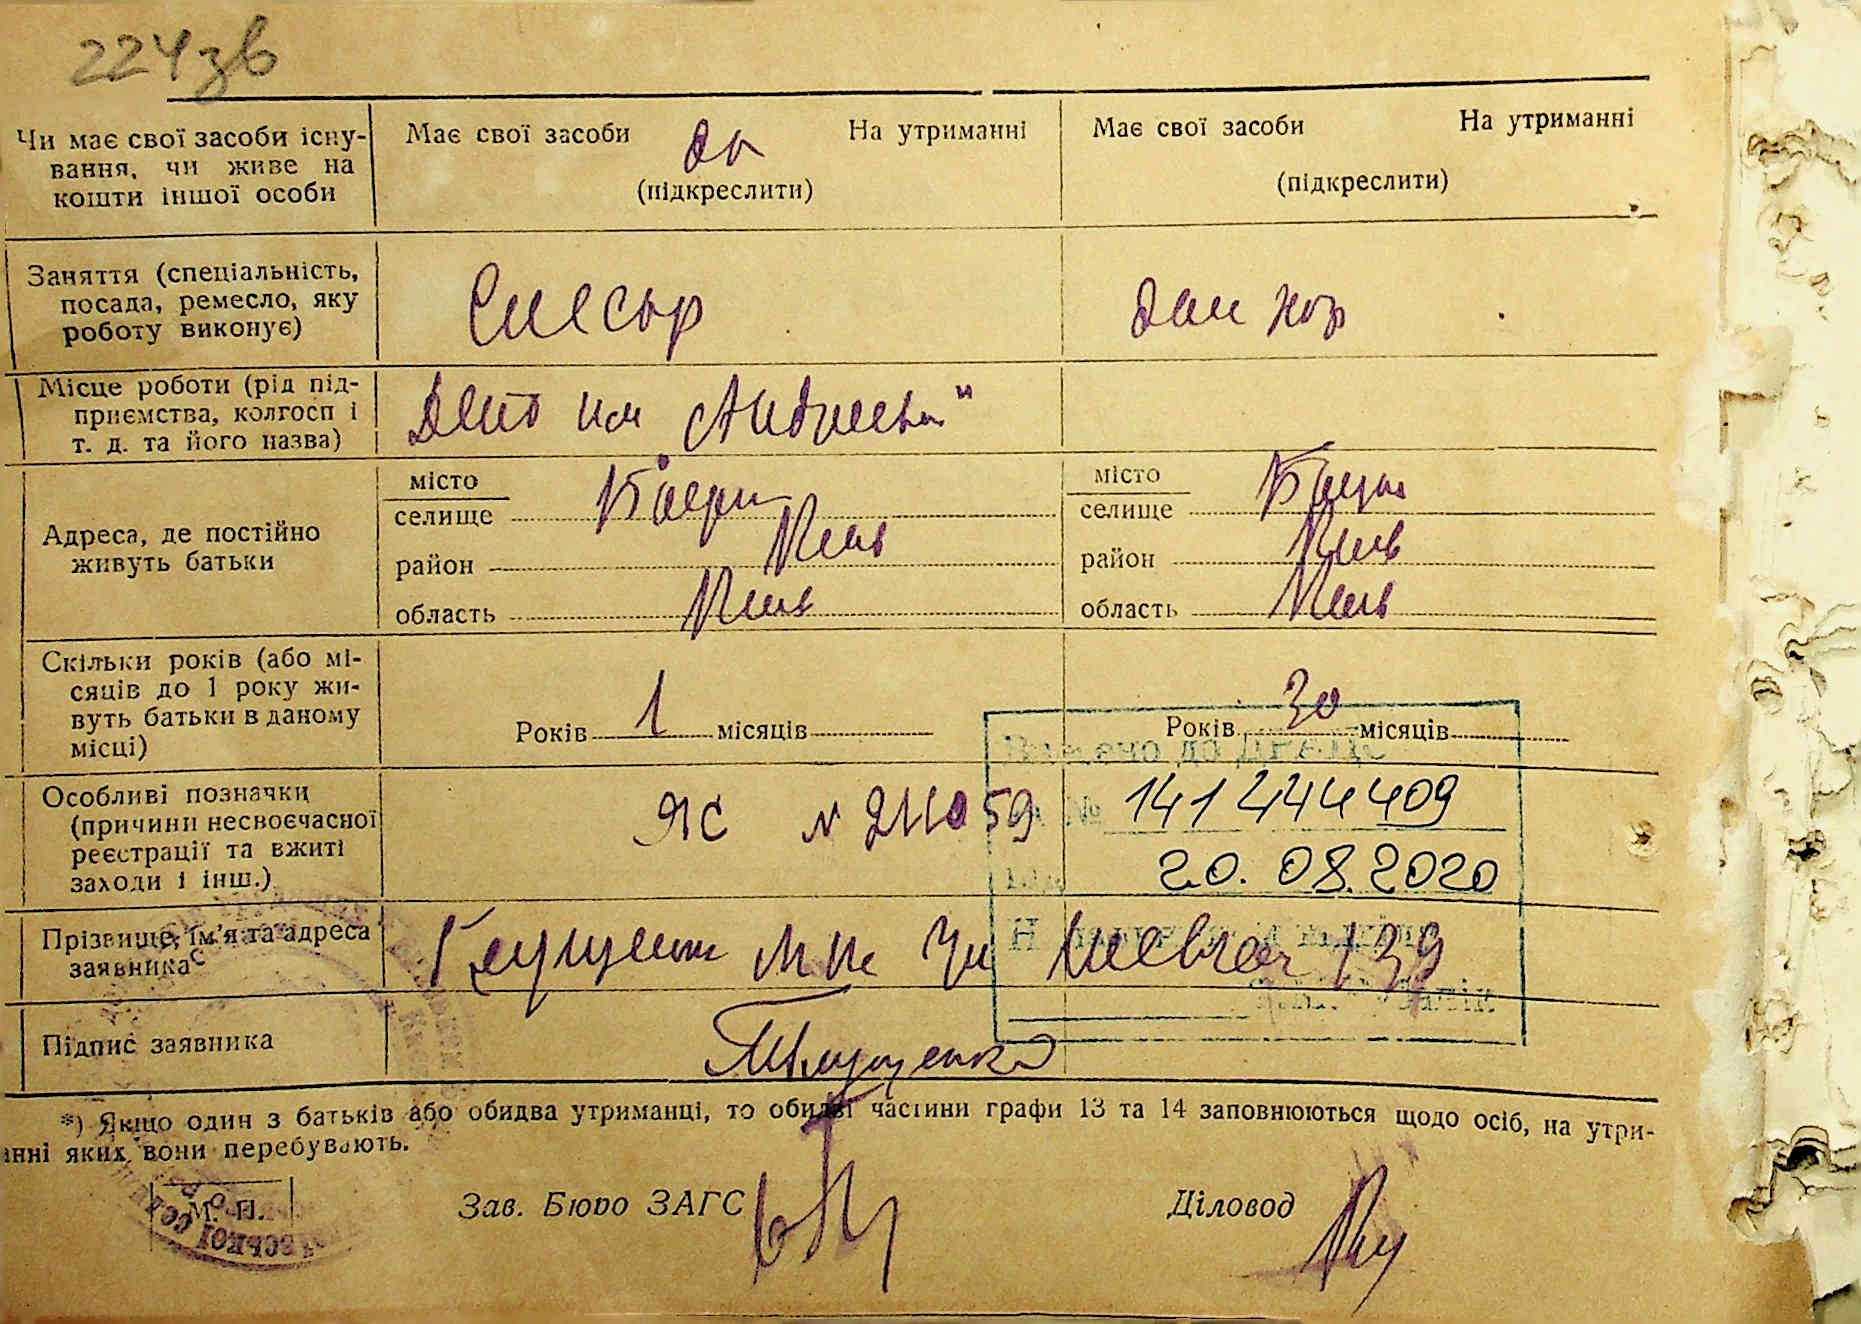 224зв
Чи має свої засоби існу-
вання, чи живе на
кошти іншої особи
Має свої засоби да На утриманні
(підкреслити)
Має свої засоби На утриманні
(підкреслити)
Заняття (спеціальність,
посада, ремесло, яку
роботу виконує)
Слесар
дом хоз
Місце роботи (рід під-
приємства, колгосп і
т. д. та його назва)
Депо им Андреева"
Адреса, де постійно
живуть батьки
місто
селище Боярка
район Киев
область Киев
місто
селище Боярка
район Киев
область Киев
Скільки років (або мі-
сяців до 1 року жи-
вуть батьки в даному
місці)
Років 1 місяців
Років 30 місяців
Особливі позначки
(причини несвоєчасної
реєстрації та вжиті
заходи і інш.)
ЯС N 211059
Внесено до ДРАЦС
№ 141444409
20.08.2020
Прізвище, ім'я та адреса
заявника
139
Підпис заявника
Глущенко
*) Якщо один з батьків або обидва утриманці, то обидві частини графи 13 та 14 заповнюються щодо осіб, на утри-
нні яких вони перебувають.
М. П.
Зав. Бюро ЗАГС
Діловод